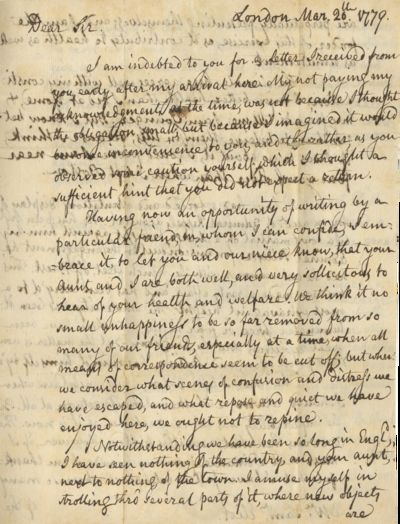 London Mar. 26th. 1779.
Dear Sir
I am indebted to you for a letter I received from
you early after my arrival here. My not paying my
acknowledgments at the time, was not because I thought
the obligation small, but because I imagined it would
be some inconvenience to you, and the rather as you
observed some caution yourself, which I thought a
sufficient hint that you did not expect a return.
Having now an opportunity of writing by a
particular friend, in whom I can confide, I em-
brace it, to let you and our niece know, that your
Aunt, and I are both well, and very sollicitous to
hear of your health and welfare. We think it no
small unhappiness to be so far removed from so
many of our friends, especially at a time, when all
means of correspondence seem to be cut off; but when
we consider what scenes of confusion and distress we
have escaped, and what repose and quiet we have
enjoyed here, we ought not to repine.
Notwithstanding we have been so long in Engl.d,
I have seen nothing of the country, and your aunt,
next to nothing of the town. I amuse myself in
strolling thro' several parts of it where new objects
are